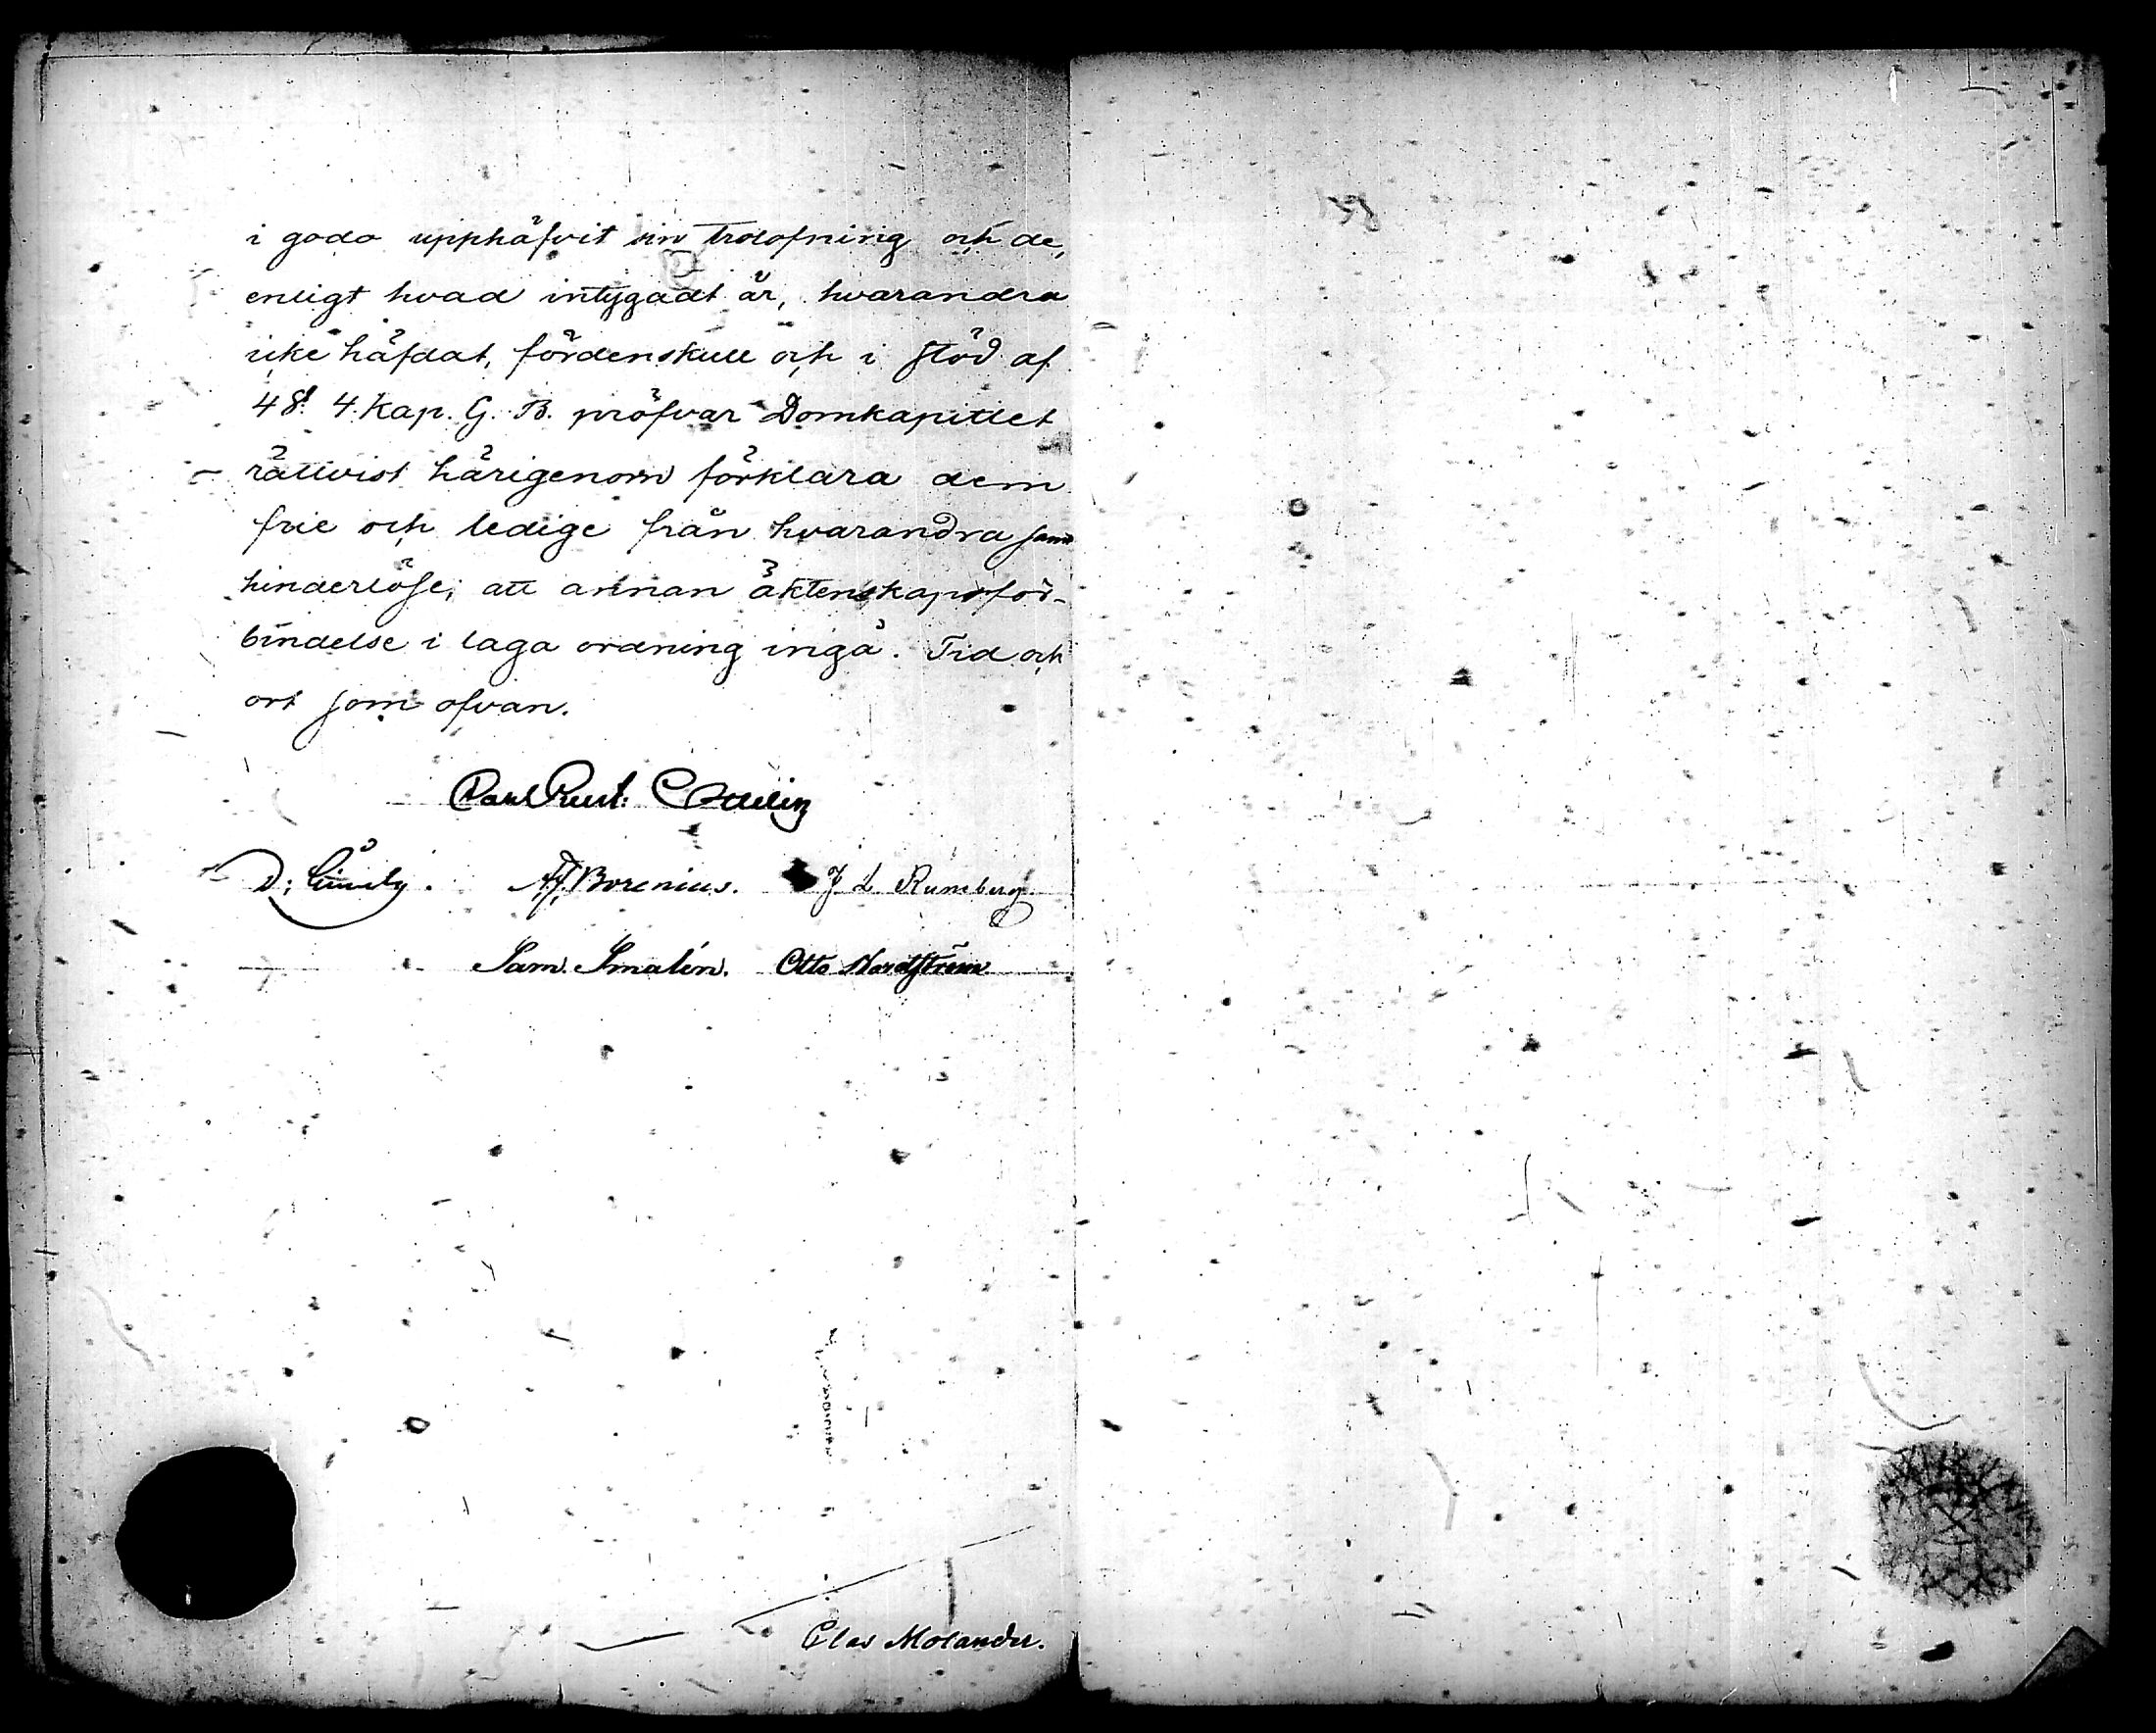 i godo upphäfvit sin trolofning och de,
enligt hvad intygadt är, hvarandra
icke häfdat, fördenskull och i stöd af
4 §. 4 Kap. G. B. pröfvar Domkapitlet
rättvist härigenom förklara dem
frie och ledige från hvarandra samt
hinderlöse, att annan äktenskapsför-
bindelse i laga ordning ingå. Tid och
ort som ofvan.
Carl Gust: Ottelin
A. J. Borenius. J L Runeberg.
Sam. Smalén. Otto Nordström
Clas Molander.